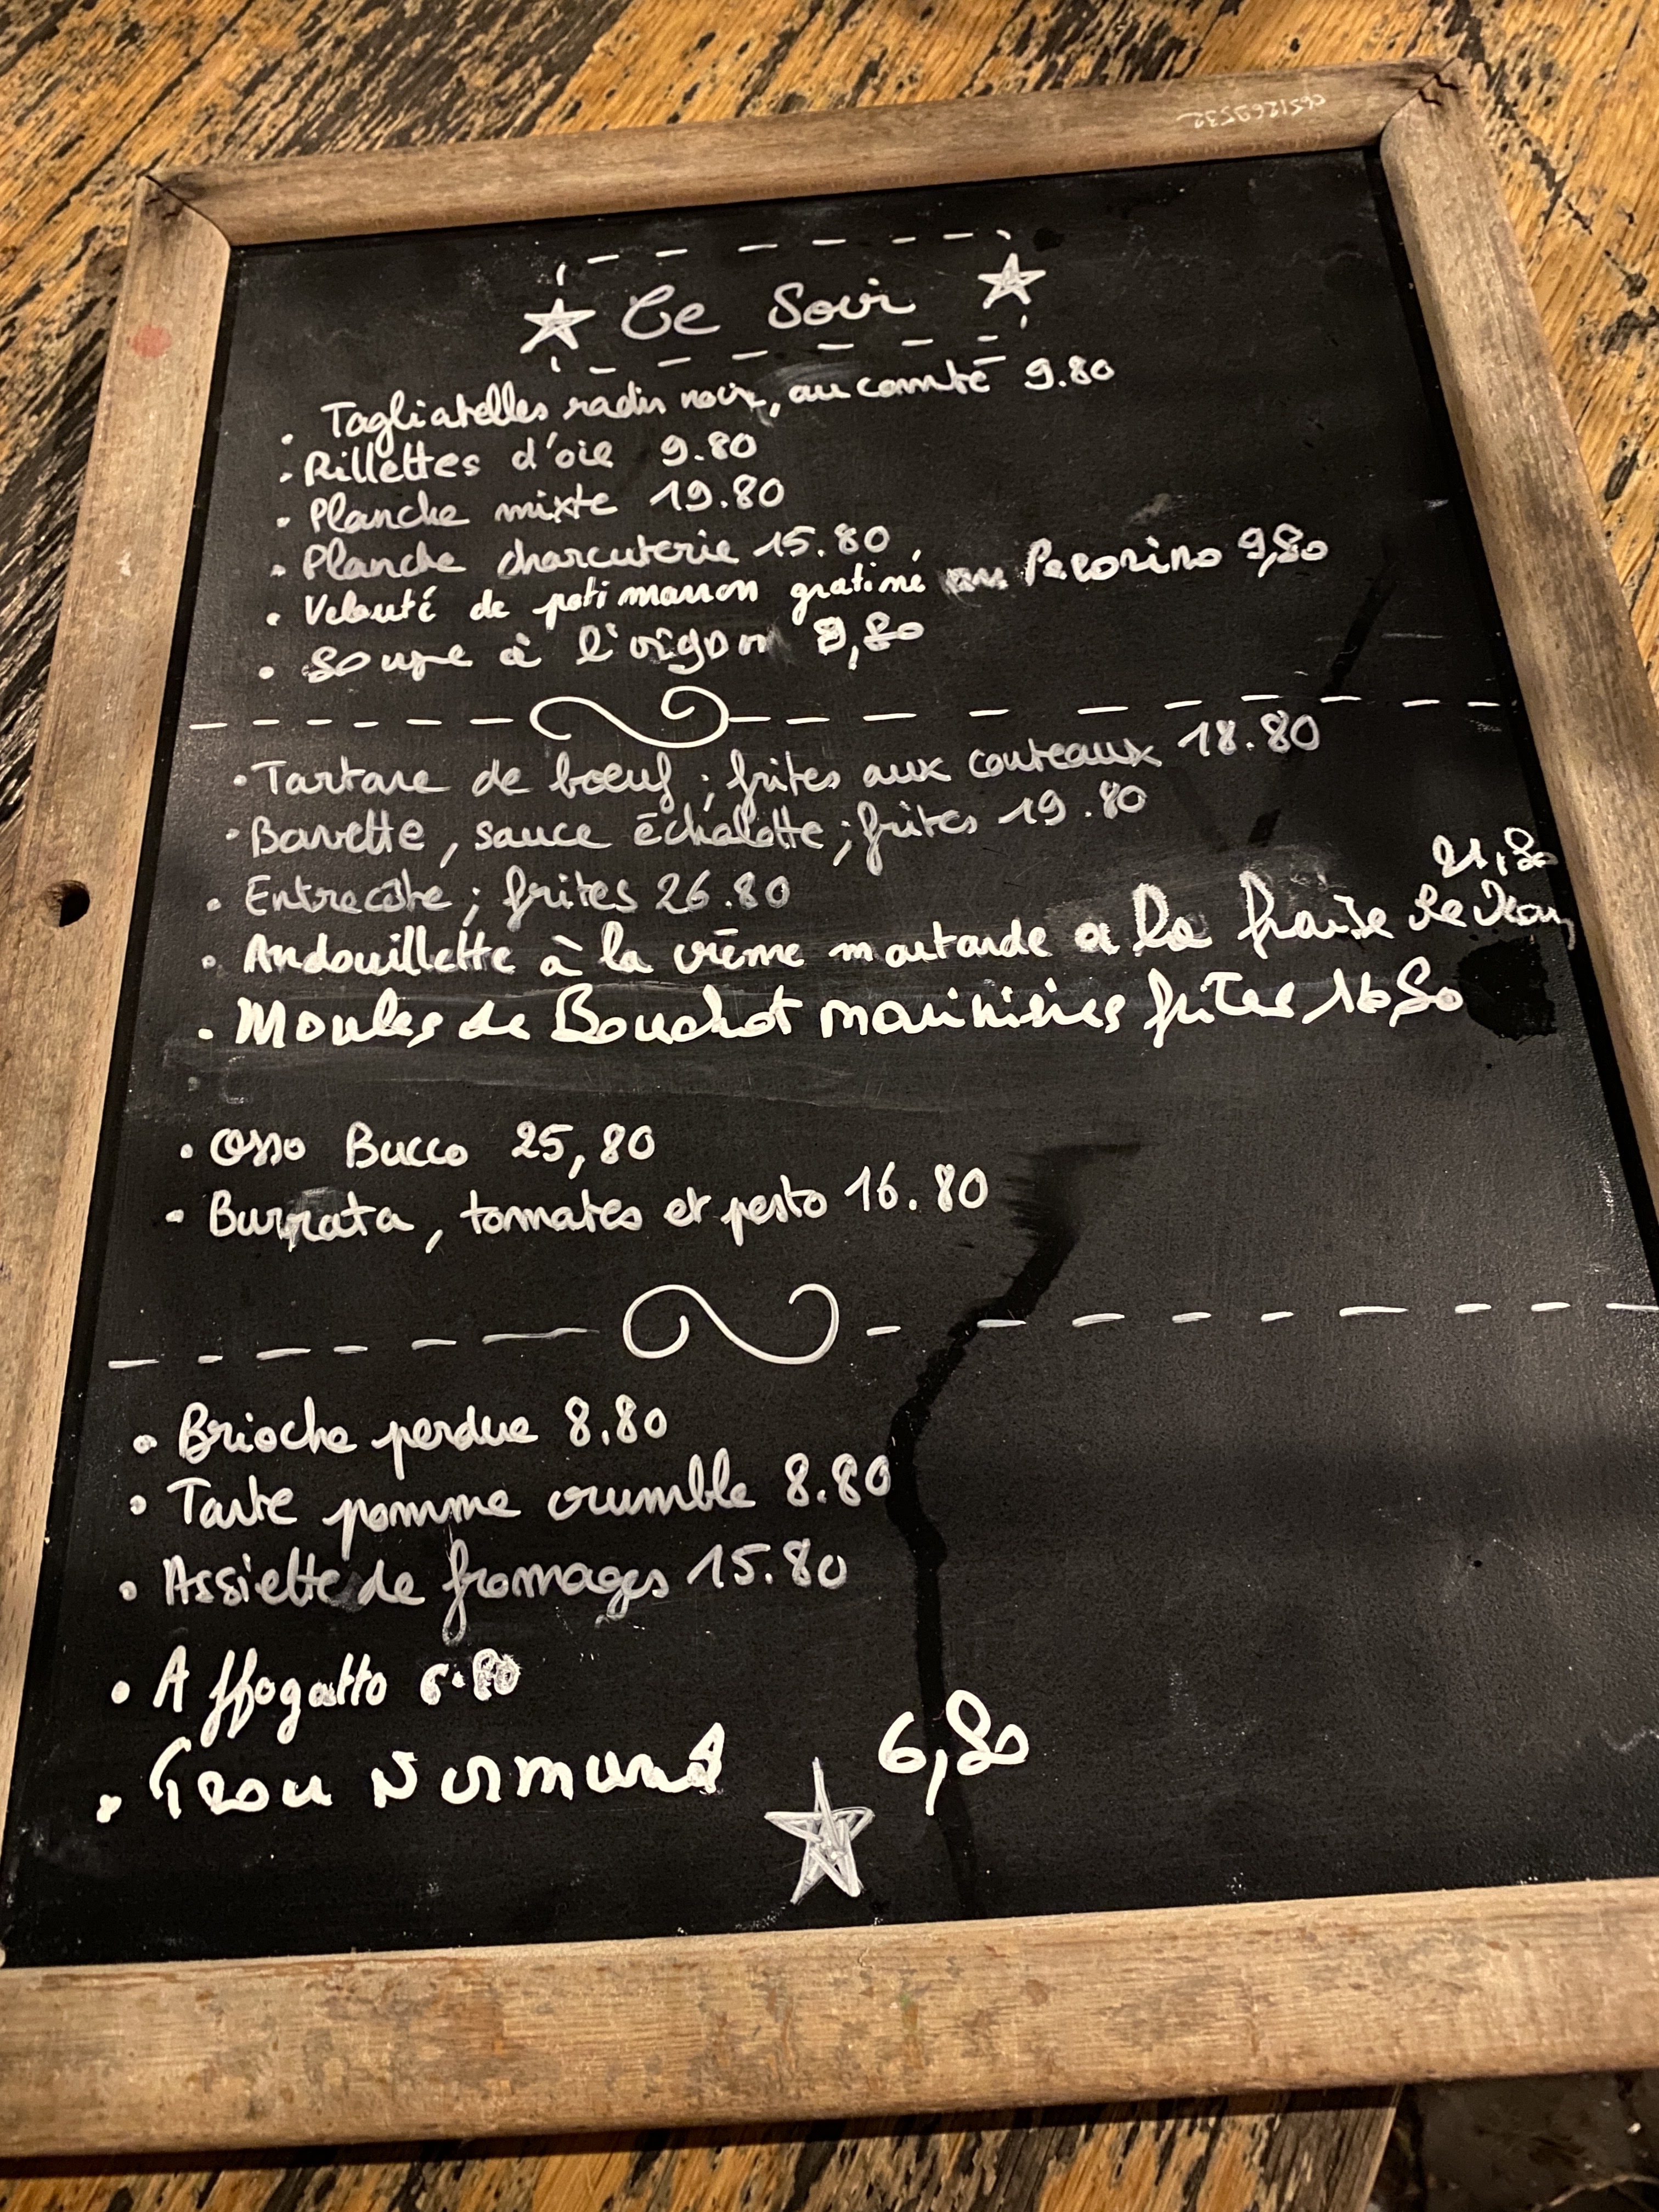 Ce Soir
• Tagliatelles radis noir, au comté 9.80
• Rillettes d'oie 9.80
• Planche mixte 19.80
• Planche charcuterie 15.80
• Velouté de potimarron gratiné au Pecorino 9,80
• Soupe à l'oignon 9,80
• Tartare de bœuf ; frites aux couteaux 18.80
• Bavette, sauce échalotte ; frites 19.80
• Entrecôte ; frites 26.80
21,80
• Andouillette à la crème moutarde a la fraise de Veau
• Moules de Bouchot marinières frites 16,80
• Osso Bucco 25,80
• Burrata, tomates et pesto 16.80
• Brioche perdue 8.80
• Tarte pomme crumble 8.80
• Assiette de fromages 15.80
• Affogatto 6.80
• Trou Normand 6,80